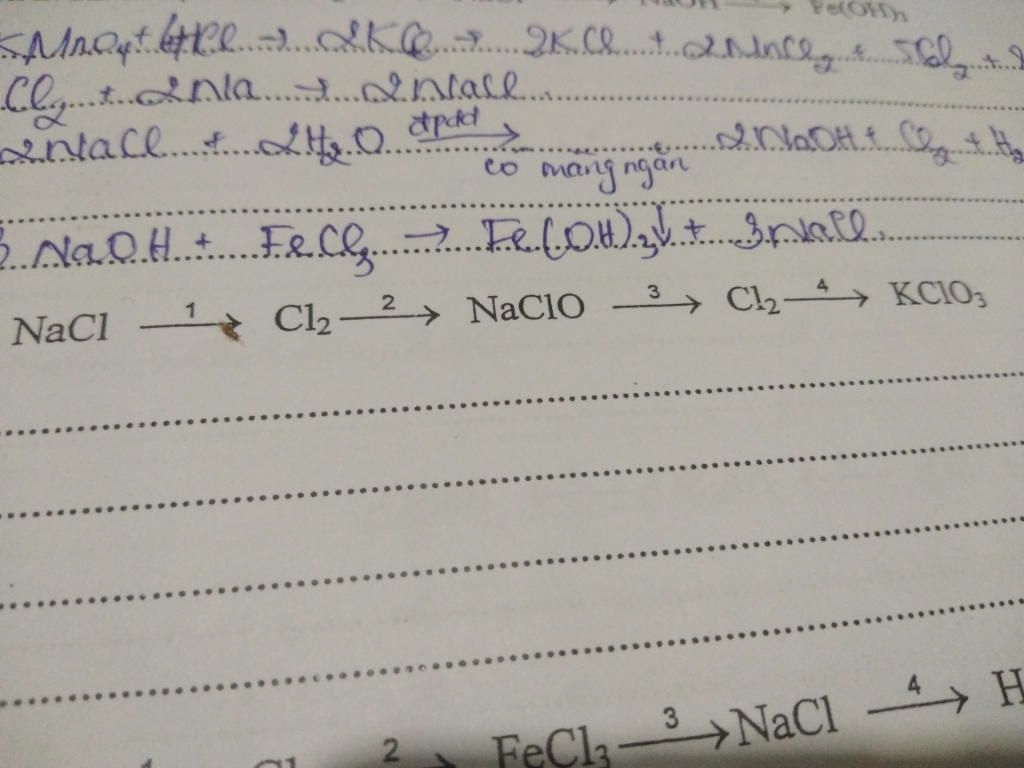 NaOH → Fe(OH)3
KMnO4 + HCl → 2KCl → 2KCl + 2MnCl2 + 5Cl2 +
Cl2 + 2Na → 2NaCl.
2NaCl + 2H2O đpdd → có màng ngăn 2NaOH + Cl2 + H2
3 NaOH + FeCl3 → Fe(OH)3↓ + 3NaCl.
NaCl 1→ Cl2 2→ NaClO 3→ Cl2 4→ KClO3
2 FeCl3 3→ NaCl 4→ H